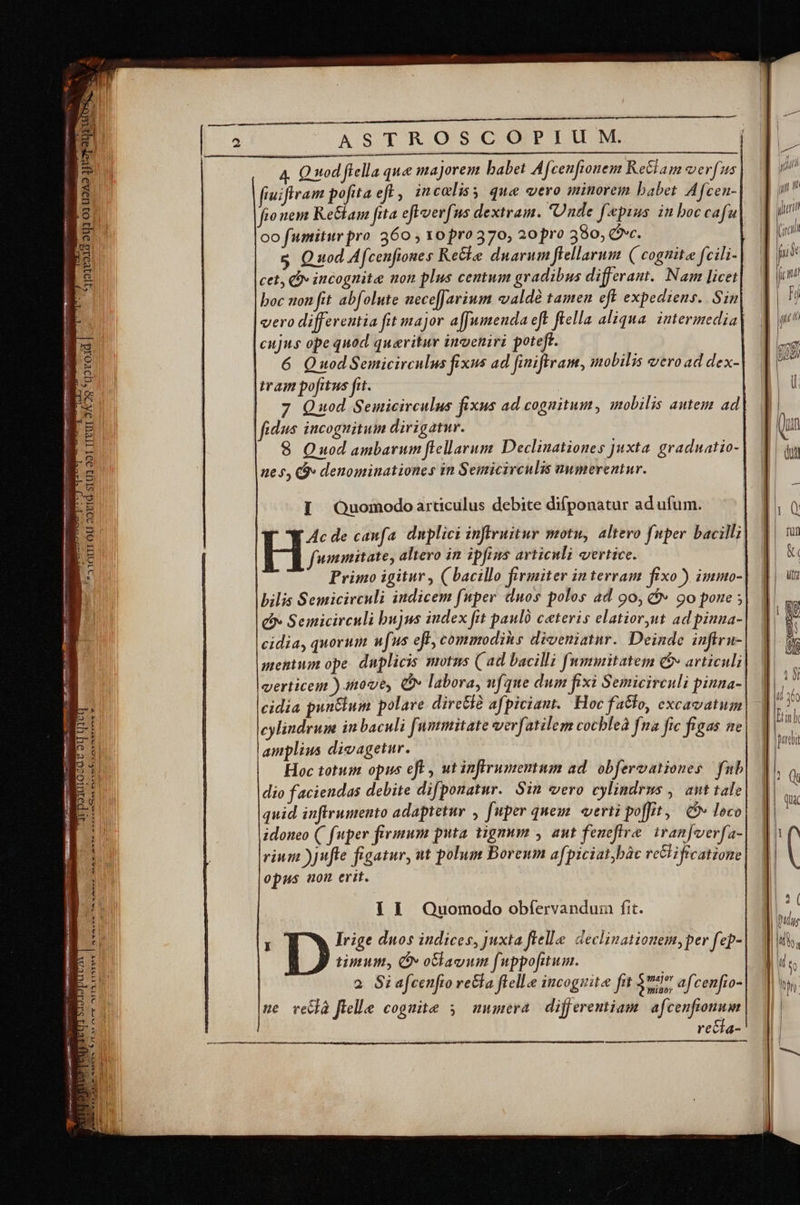 2 ASTROSCOPIUM.
4 Quod ſtella quæ majorem habet Aſcenſionem Rectam verſus
ſiniſtram poſita eſt, in cœlis; quæ vero minorem habet Aſcen-
ſionem Rectam ſita eſt verſus dextram. Unde ſæpius in hoc caſu
00 ſumitur pro 360, 10 pro 370, 20 pro 380, &c.
5 Quod Aſcenſiones Rectæ duarum ſtellarum (cognitæ ſcili-
cet, & incognitæ non plus centum gradibus differant. Nam licet
hoc non ſit abſolute neceſſarium valdè tamen eſt expediens. Sin
vero differentia ſit major aſſumenda eſt ſtella aliqua intermedia
cujus ope quod quæritur inveniri poteſt.
6 Quod Semicirculus fixus ad ſiniſtram, mobilis vero ad dex-
tram poſitus ſit.
7 Quod Semicirculus fixus ad cognitum, mobilis autem ad
ſidus incognitum dirigatur.
8 Quod ambarum ſtellarum Declinationes juxta graduatio-
nes, & denominationes in Semicirculis numerentur.
I Quomodo articulus debite diſponatur ad uſum.
HAc de cauſa duplici inſtruitur motu, altero ſuper bacilli
ſummitate, altero in ipſius articuli vertice.
Primo igitur, (bacillo firmiter in terram fixo) immo-
bilis Semicirculi indicem ſuper duos polos ad 90, & 90 pone;
& Semicirculi hujus index ſit paulò cæteris elatior, ut ad pinna-
cidia, quorum uſus eſt, commodiùs diveniatur. Deinde inſtru-
mentum ope duplicis motus (ad bacilli ſummitatem & articuli
verticem) move, & labora, uſque dum fixi Semicirculi pinna-
cidia punctum polare directè aſpiciant. Hoc facto, excavatum
cylindrum in baculi ſummitate verſatilem cochleâ ſua ſic figas ne
amplius divagetur.
Hoc totum opus eſt, ut inſtrumentum ad obſervationes ſub
dio faciendas debite diſponatur. Sin vero cylindrus, aut tale
quid inſtrumento adaptetur, ſuper quem verti poſſit, & loco
idoneo (ſuper firmum puta tignum, aut feneſtræ tranſverſa-
rium) juſte figatur, ut polum Boreum aſpiciat, hâc rectificatione
opus non erit.
II Quomodo obſervandum ſit.
1 DIrige duos indices, juxta ſtellæ declinationem, per ſep-
timum, & octavum ſuppoſitum.
2 Si aſcenſio recta ſtellæ incognitæ ſit { major minor aſcenſio-
ne rectâ ſtellæ cognitæ; numera differentiam aſcenſionum
recta-